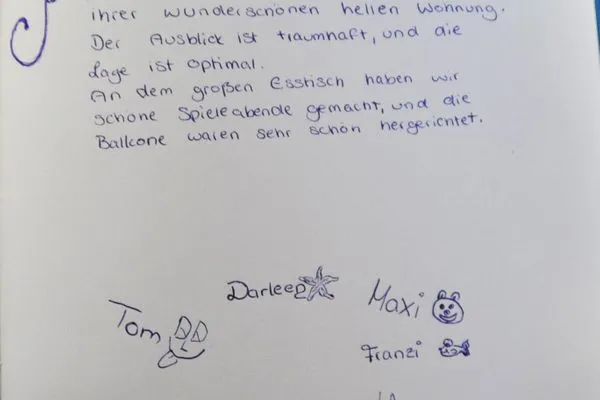 ihrer wunderschönen hellen Wohnung.
Der Ausblick ist traumhaft, und die
Lage ist optimal.
An dem großen Esstisch haben wir
schöne Spieleabende gemacht, und die
Balkone waren sehr schön hergerichtet.
Darleen
Maxi
Tom
Franzi